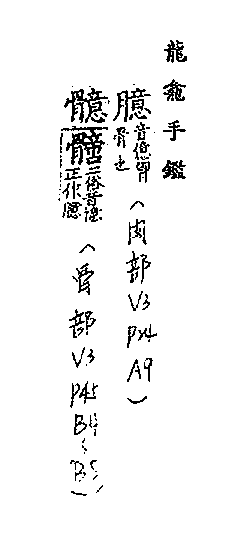 龍龕手鑑
臆音億胷骨也（肉部V3P24A9）
髓髓二俗音億正作臆（骨部V3P45B4~B5）